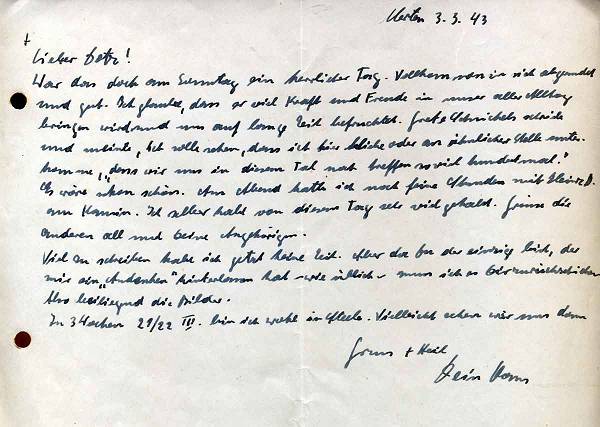 3. 3. 43
Lieber
War das doch am Sonntag ein herrlicher Tag. Vollkommen in sich abgerundet
und gut. Ich glaube, dass er viel Kraft und Freude in unser aller Alltag
bringen wird und uns auf lange Zeit befruchtet. Grete
und meinte, Ich solle sehen, dass ich hier bliebe oder an ähnlicher Stelle unter-
komme, "dass wir uns in diesem Tal noch treffen so viel hundertmal."
Es wäre schon schön. Am Abend hatte ich noch feine Stunden mit Heinz
am Kamin. Ich selber habe von diesem Tag sehr viel gehabt. Grüsse die
anderen all und Deine Angehörigen.
Viel zu schreiben habe ich jetzt keine Zeit. Aber da Du der einzige bist, der
mir ein "Andenken" hinterlassen hat - wie üblich - muss ich es Dir zurückschicken
Also beiliegend die Bilder.
In 3 Wochen 21/22 III. bin ich wohl in Vielleicht sehen wir uns dann
Gruss + Heil
Dein Hans